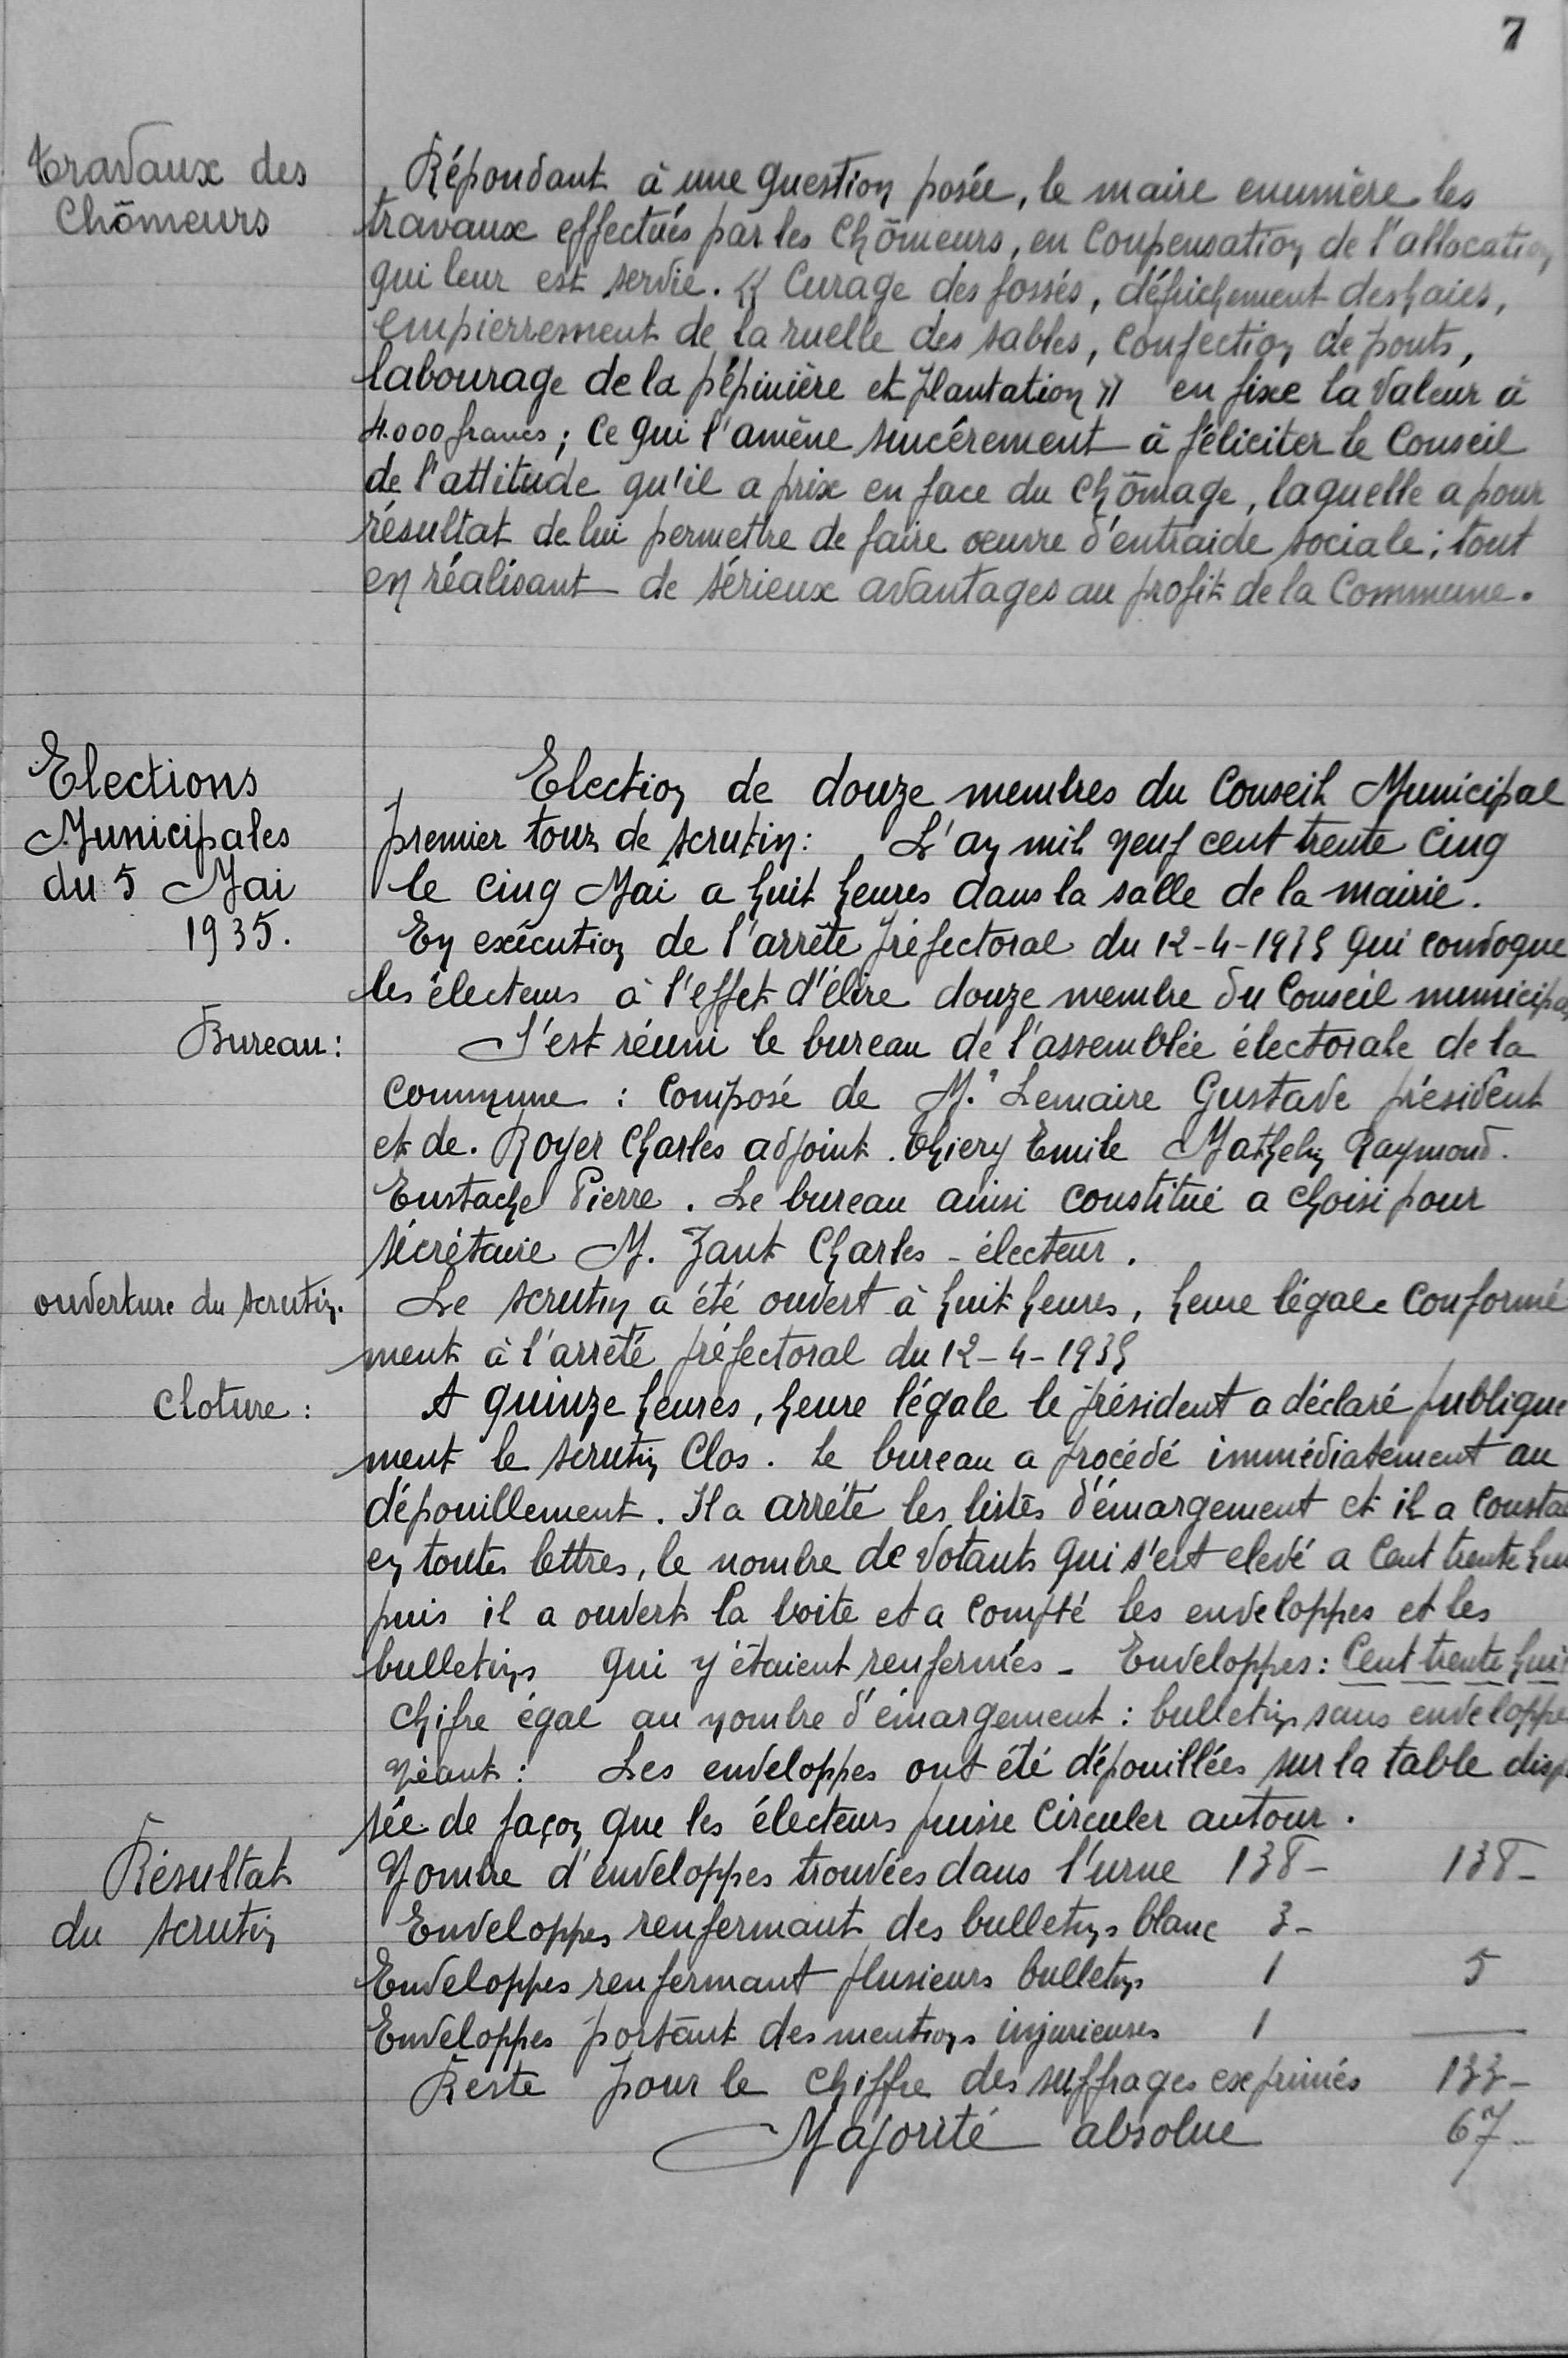 7
Travaux des
Chômeurs
Répondant à une question posée, le maire enumère les
travaux effectués par les Chômeurs, en Coupensation de l'allocation
qui leur est servie. « Curage des fossés, défrichement des haies,
empierrement de la ruelle des sables, Confection de ponts,
labourage de la pépinière et plantation » en fixe la valeur à
4.000 francs ; Ce qui l'amène sincérement à féliciter le Conseil
de l'attitude qu'il a prix en face du Chômage, laquelle a pour
résultat de lui permettre de faire oeuvre d'entraide sociale ; tout
en réalisant de sérieux avantages au profit de la Commune.
Elections
Municipales
du 5 Mai
1935.
Election de douze membres du Conseil Municipal
premier tour de scrutin : L'an mil neuf cent trente Cinq
le cinq Mai a huit heures dans la salle de la mairie.
En exécution de l'arrêté Préfectoral du 12-4-1935 qui convoque
les électeurs à l'effet d'élire douze membre du Conseil municipal
Bureau :
S'est réuni le bureau de l'assemblée électorale de la
Commune : Composé de Mr Lemaire Gustave président
et de. Royer Charles adjoint. Thiery Emile Mathelin Raymond.
Eustache Pierre. Le bureau ainsi constitué a choisi pour
sécrétaire M. Zant Charles - électeur.
ouverture du scrutin.
Le scrutin a été ouvert à huit heures, heure légale Conformé
ment à l'arrêté préfectoral du 12-4-1935
Cloture :
A quinze heures, heure légale le président a déclaré publique
ment le scrutin Clos. Le bureau a procédé immédiatement au
dépouillement. Il a arrété les listes d'émargement et il a consta
en toutes lettres, le nombre de votants qui s'est elevé a Cent trente hui
puis il a ouvert la boite et a compté les enveloppes et les
bulletins qui y étaient renfermés - Enveloppes : Cent trente huit
Chifre égal au nombre d'émargement : bulletin sans enveloppe
Néant : Les enveloppes ont été dépouillées sur la table dispo
sée de façon que les électeurs puisse Circuler autour.
Résultat
du scrutin
Nombre d'enveloppes trouvées dans l'urne 138 - 138 -
Enveloppes renfermant des bulletins blanc 3 -
Enveloppes renfermant plusieurs bulletins 1 5
Enveloppes portant des mentions injurieuses 1
Reste pour le Chiffre des suffrages exprimés 133 -
Majorité absolue 67 -